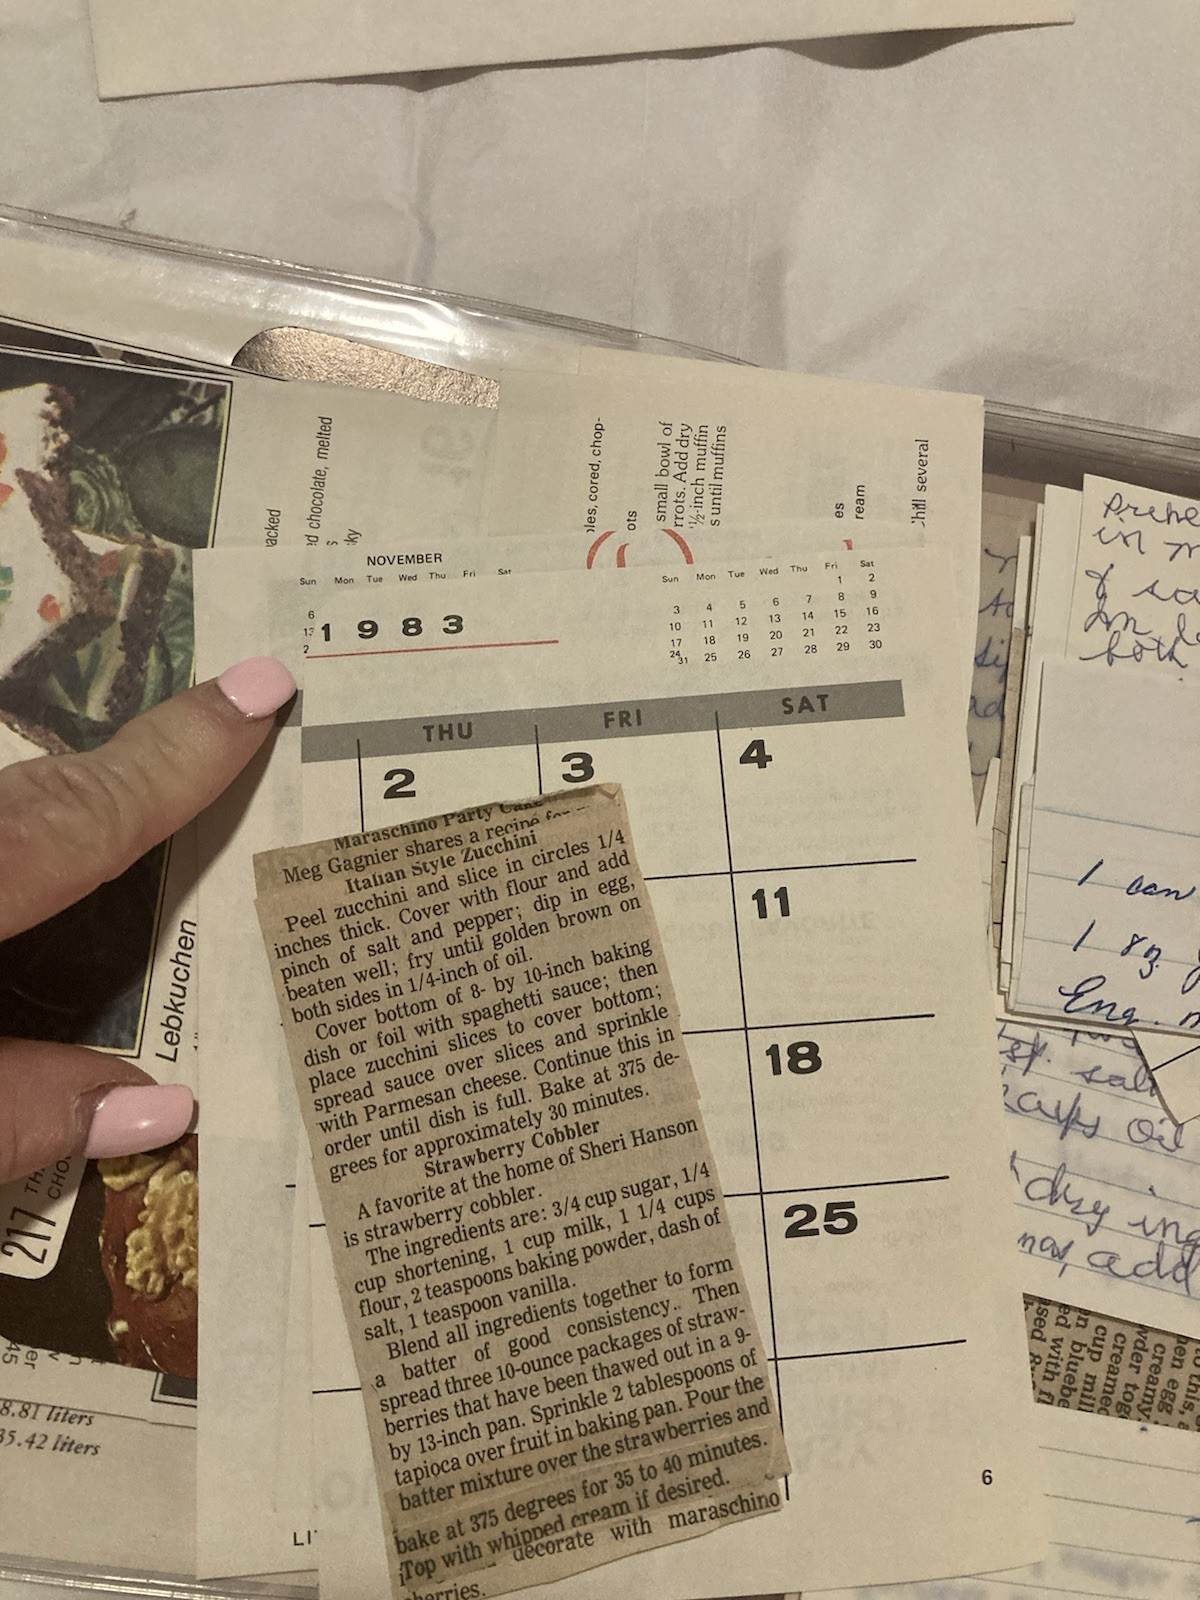 acked
d chocolate, melted
ky
les, cored, chop-
ots
small bowl of
rrots. Add dry
½-inch muffin
s until muffins
es
ream
hill several
NOVEMBER
Sun Mon Tue Wed Thu Fri Sat
6
13
2
1 9 8 3
Sun Mon Tue Wed Thu Fri Sat
1 2
3 4 5 6 7 8 9
10 11 12 13 14 15 16
17 18 19 20 21 22 23
24 31 25 26 27 28 29 30
THU FRI SAT
2 3 4
11
18
25
6
LI
Maraschino Party Cake
Meg Gagnier shares a recipe for
Italian Style Zucchini
Peel zucchini and slice in circles 1/4
inches thick. Cover with flour and add
pinch of salt and pepper; dip in egg,
beaten well; fry until golden brown on
both sides in 1/4-inch of oil.
Cover bottom of 8- by 10-inch baking
dish or foil with spaghetti sauce; then
place zucchini slices to cover bottom;
spread sauce over slices and sprinkle
with Parmesan cheese. Continue this in
order until dish is full. Bake at 375 de-
grees for approximately 30 minutes.
Strawberry Cobbler
A favorite at the home of Sheri Hanson
is strawberry cobbler.
The ingredients are: 3/4 cup sugar, 1/4
cup shortening, 1 cup milk, 1 1/4 cups
flour, 2 teaspoons baking powder, dash of
salt, 1 teaspoon vanilla.
Blend all ingredients together to form
a batter of good consistency. Then
spread three 10-ounce packages of straw-
berries that have been thawed out in a 9-
by 13-inch pan. Sprinkle 2 tablespoons of
tapioca over fruit in baking pan. Pour the
batter mixture over the strawberries and
bake at 375 degrees for 35 to 40 minutes.
Top with whipped cream if desired.
decorate with maraschino
cherries.
Lebkuchen
217
TH
CHO
45
er
8.81 liters
35.42 liters
in
both
1 can
1 8 z
Eng.
cups oil
dry ing
add
to this,
hen egg
creamy
wder tog
creamed
cup mil
n bluebe
ed with fl